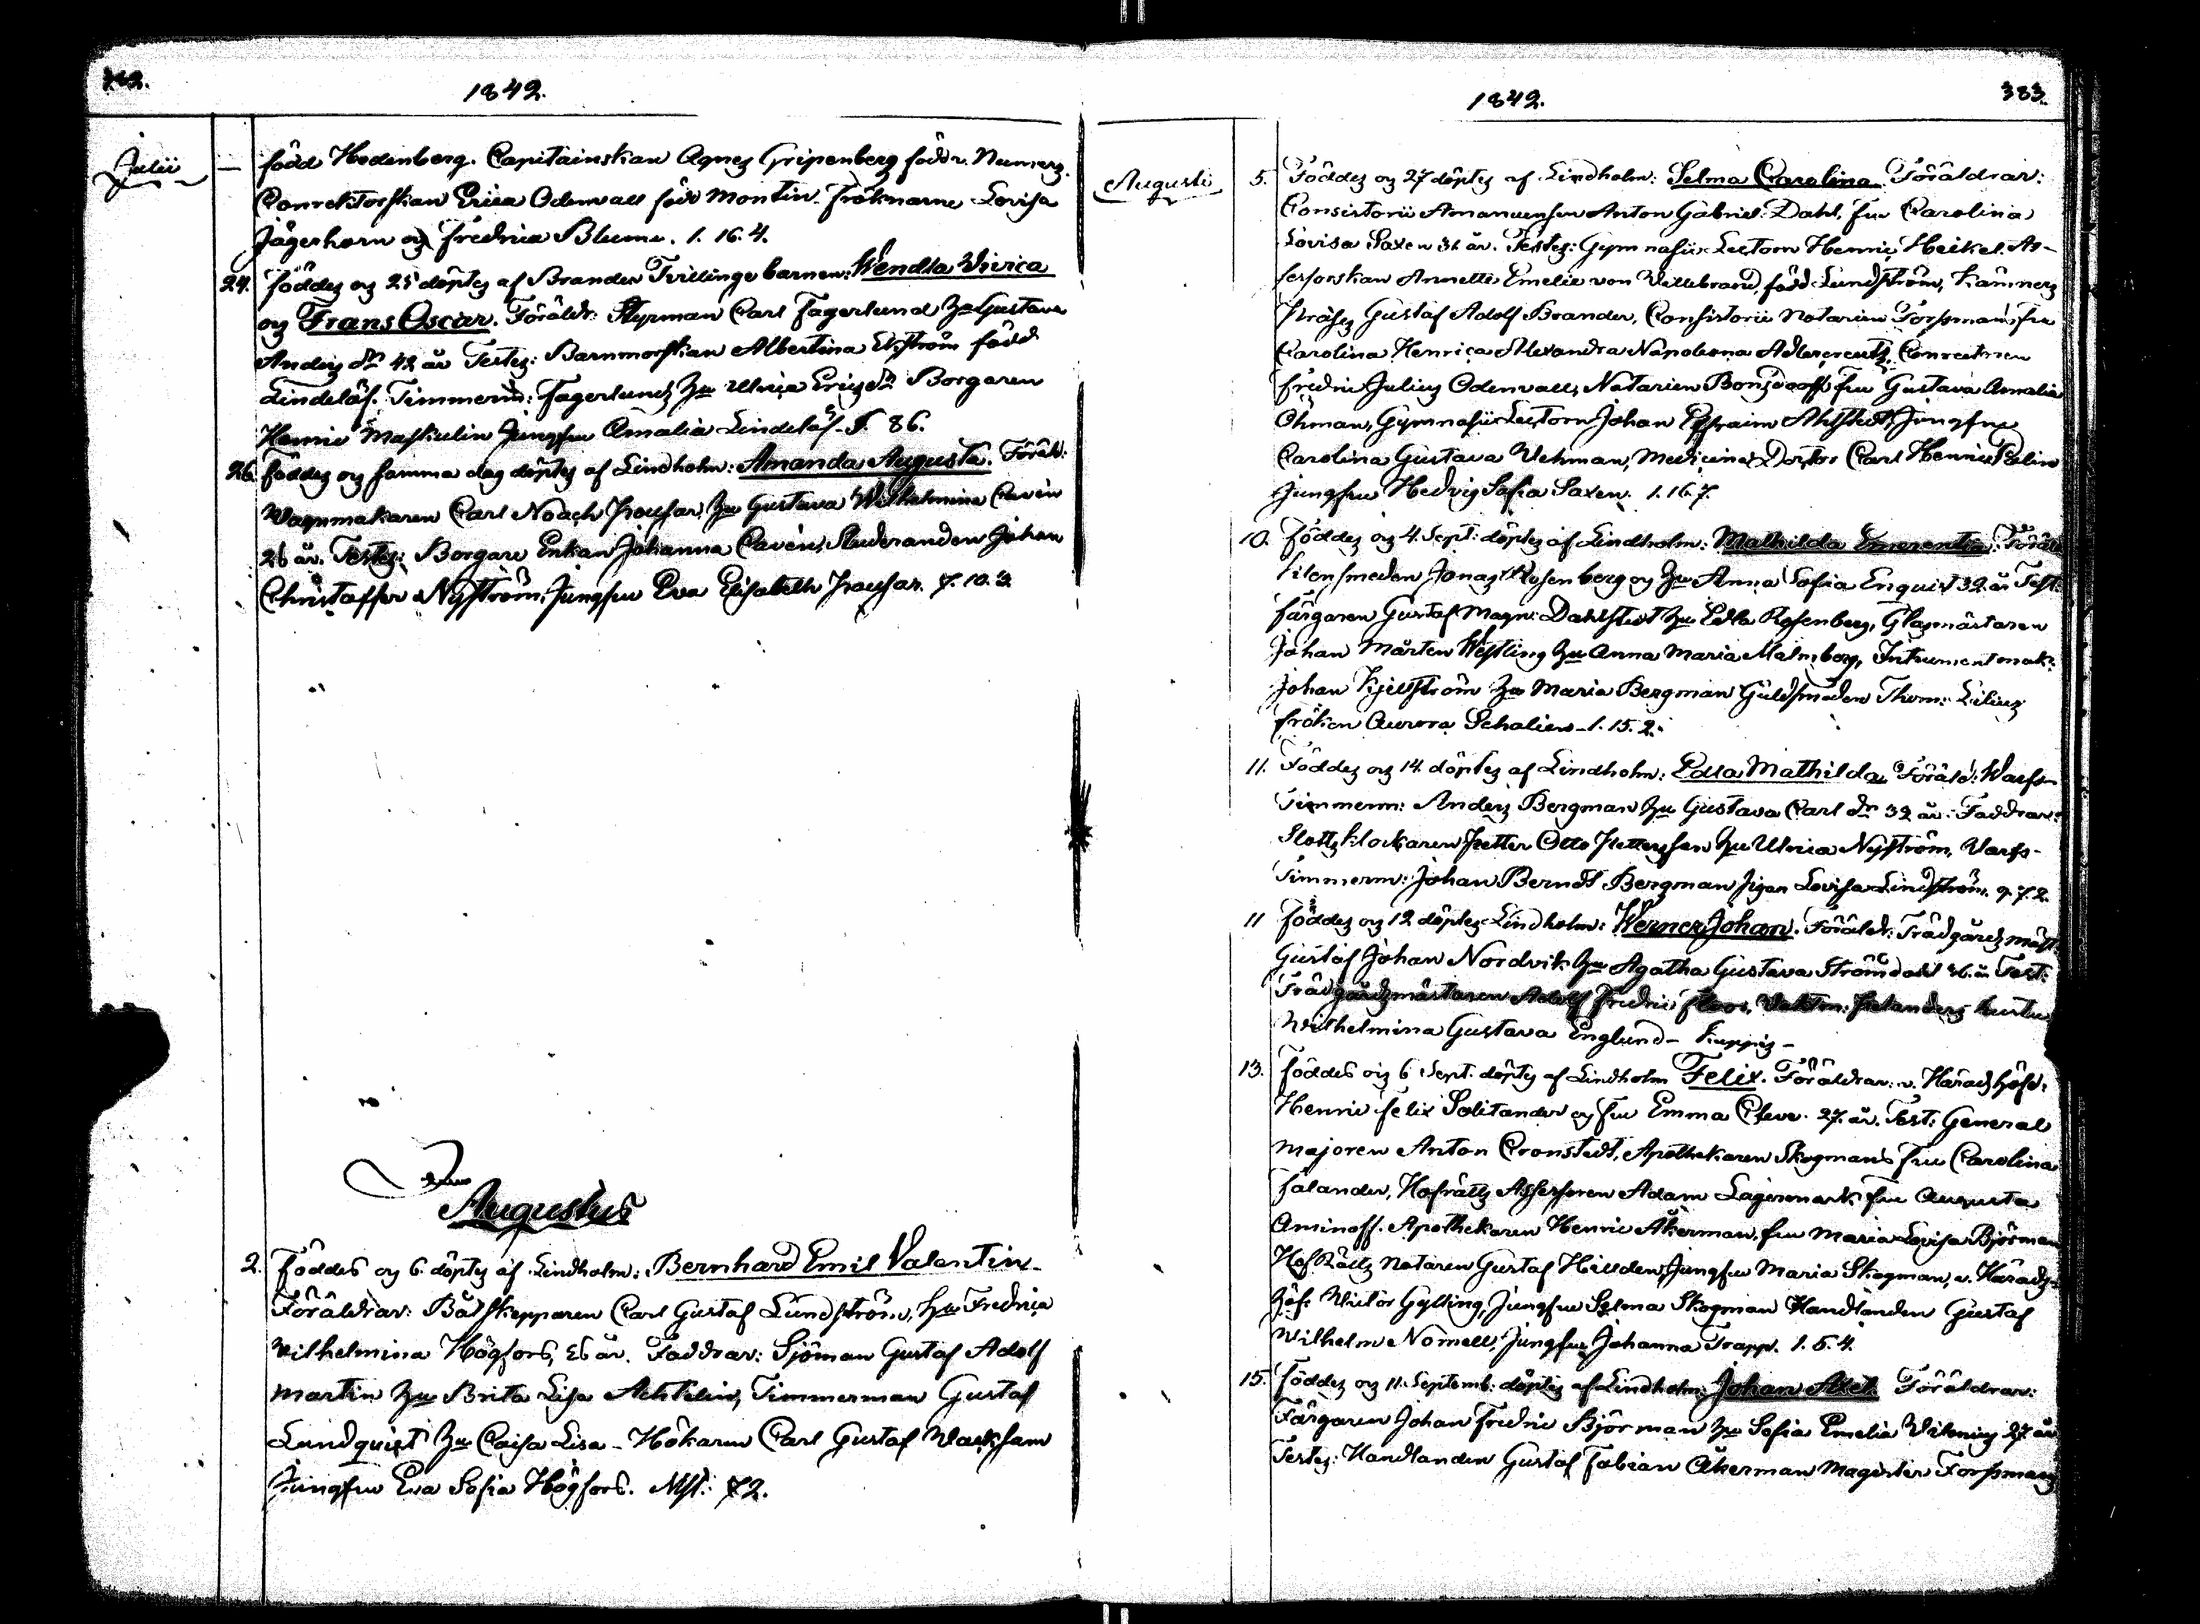 1842.
Julii
född Hedenberg. Capitainskan Agnes Gripenberg född v. Numers.
Conrektorskan Erica Odenvall född Montin. Fröknarne Lovisa
Jägerhorn og Fredrica Blume. 1. 16. 4.
24. föddes og 25 döptes af Brander Tvillinge barnen: Wendla Vivica
og Frans Oscar. Föräldr: Styrman Carl Fagerlund hu Gustava
Anders dr 42 år Testes: Barnmorskan Albertina Ekström född
Lindelöf. Timmerm: Fagerlund hu Ulrica Ericsdr Borgaren
Henric Maskulin Jungfru Amalia Lindelöf. S. 86.
26. föddes og samma dag döptes af Lindholm: Amanda Augusta. Föräld:
Vagnmakaren Carl Noach hu Gustava Wilhelmina Cavén
26 år. Testes: Borgare Enkan Johanna Cavén, Studeranden Johan
Christoffer Nyström, Jungfru Eva Elisabeth 7. 10. 3.
Augustus
2. Föddes og 6 döptes af Lindholm: Bernhard Emil Valentin.
Föräldrar: Båtskepparen Carl Gustaf Lundström, hu Fredrica
Vilhelmina Högfors, 26 år. Faddrar: Sjöman Gustaf Adolf
Martin hu Brita Lisa Achtelin, Timmerman Gustaf
Lundquist hu Caisa Lisa – Hökaren Carl Gustaf Varksam
Jungfru Eva Sofia Högfors. 72.
1842. 383.
Augusti
5. Föddes og 27 döptes af Lindholm: Selma Carolina Föräldrar:
Consistorii Amanuensen Anton Gabriel Dahl, fru Carolina
Lovisa Saxen 31 år. Testes: Gymnasii Lectorn Henric Heikel. As-
sessorskan Annette Emelie von Willebrand, född Lundström, Kämners
Præses Gustaf Adolf Brander, Consistorii Notarien Forssman, fru
Carolina Henrica Alexandra Napoleona Adlercreutz, Conrectorn
Fredric Julius Odenvall, Notarien Bonsdorff, fru Gustava Amalia
Öhman, Gymnasii Lectorn Johan Efraim Ahlstedt, Jungfru
Carolina Gustava Wehman, Medicine Doctor Carl Henric Relin
Jungfru Hedvig Sofia Saxen. 1. 16. 7.
10. föddes og 4. Sept: döptes af Lindholm: Mathilda Emerentia. Föräl
smeden Jonas Rosenberg og hu Anna Sofia Enquist 32 år Test:
färgaren Gustaf Magn: Dahlstedt hu Edla Rosenberg, Glasmästaren
Johan Mårten Westling hu Anna Maria Malmberg, Intrumentmak:
Johan Kjellström hu Maria Bergman Guldsmeden Thom: Lilius
fröken Aurora Schalien – 1. 15. 2.
11. Föddes og 14 döptes af Lindholm: Edla Mathilda. Föräld: Varfs-
Timmerm: Anders Bergman hu Gustava Carl dr 32 år. Faddrar:
Slottsklockaren Petter Otto Pettersson hu Ulrica Nyström, Varfs-
Timmerm: Johan Berndt Bergman Pigan Lovisa Lindström. 9. 7. 2.
11 föddes og 12 döptes Lindholm: Werner Johan. Föräldr: Trädgårdsmäst:
Gustaf Johan Nordvik hu Agatha Gustava Strömdahl 36 år Test:
Trädgårdsmästaren Adolf Fredric hustru
Wilhelmina Gustava Englund – Kuppis –
13. föddes og 6 Sept. döptes af Lindholm Felix. Föräldrar: v. Häradshöfd:
Henric Felix Solitander og fru Emma Cleve. 27. år. Test: General
majoren Anton Cronstedt, Apothekaren Skogmans fru Carolina
Salander, Hofrätts Assessoren Adam Lagermark fru Augusta
Aminoff. Apothekaren Henric Åkerman, fru Maria Lovisa Björman
HofRätts Notaren Gustaf Hillden, Jungfru Maria Skogman, v. Härads-
höf: Victor Gylling, Jungfru Selma Skogman Handlanden Gustaf
Wilhelm Nomell, Jungfru Johanna Trapp. 1. 5. 4.
15. föddes og 11. Septemb: döptes af Lindholm: Johan Axel. Föräldrar:
Färgaren Johan Fredric Björman hu Sofia Emelia 27 år
Testes: Handlanden Gustaf Fabian Åkerman Magister Forssmans